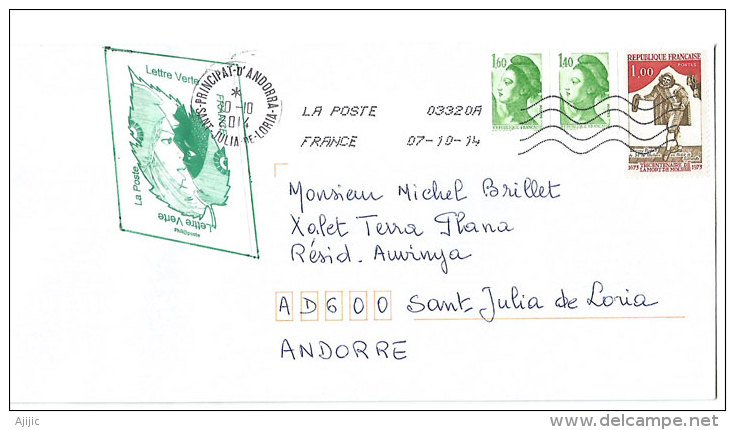 Lettre Verte
La Poste
Lettre Verte
Philaposte
PRINCIPAT-D'ANDORRA
*
10-10
2014
FRANCE
SANT-JULIA-DE-LORIA
LA POSTE 03320A
FRANCE 07-10-14
1,60
REPUBLIQUE FRANÇAISE
1,40
REPUBLIQUE FRANÇAISE
REPUBLIQUE FRANÇAISE
1,00 POSTES
1673 TRICENTENAIRE DE 1973
LA MORT DE MOLIÈRE
Monsieur Michel Brillet
Xalet Terra Plana
Résid. Auvinya
AD600 Sant Julia de Loria
ANDORRE
Ajijic
©delcampe.net